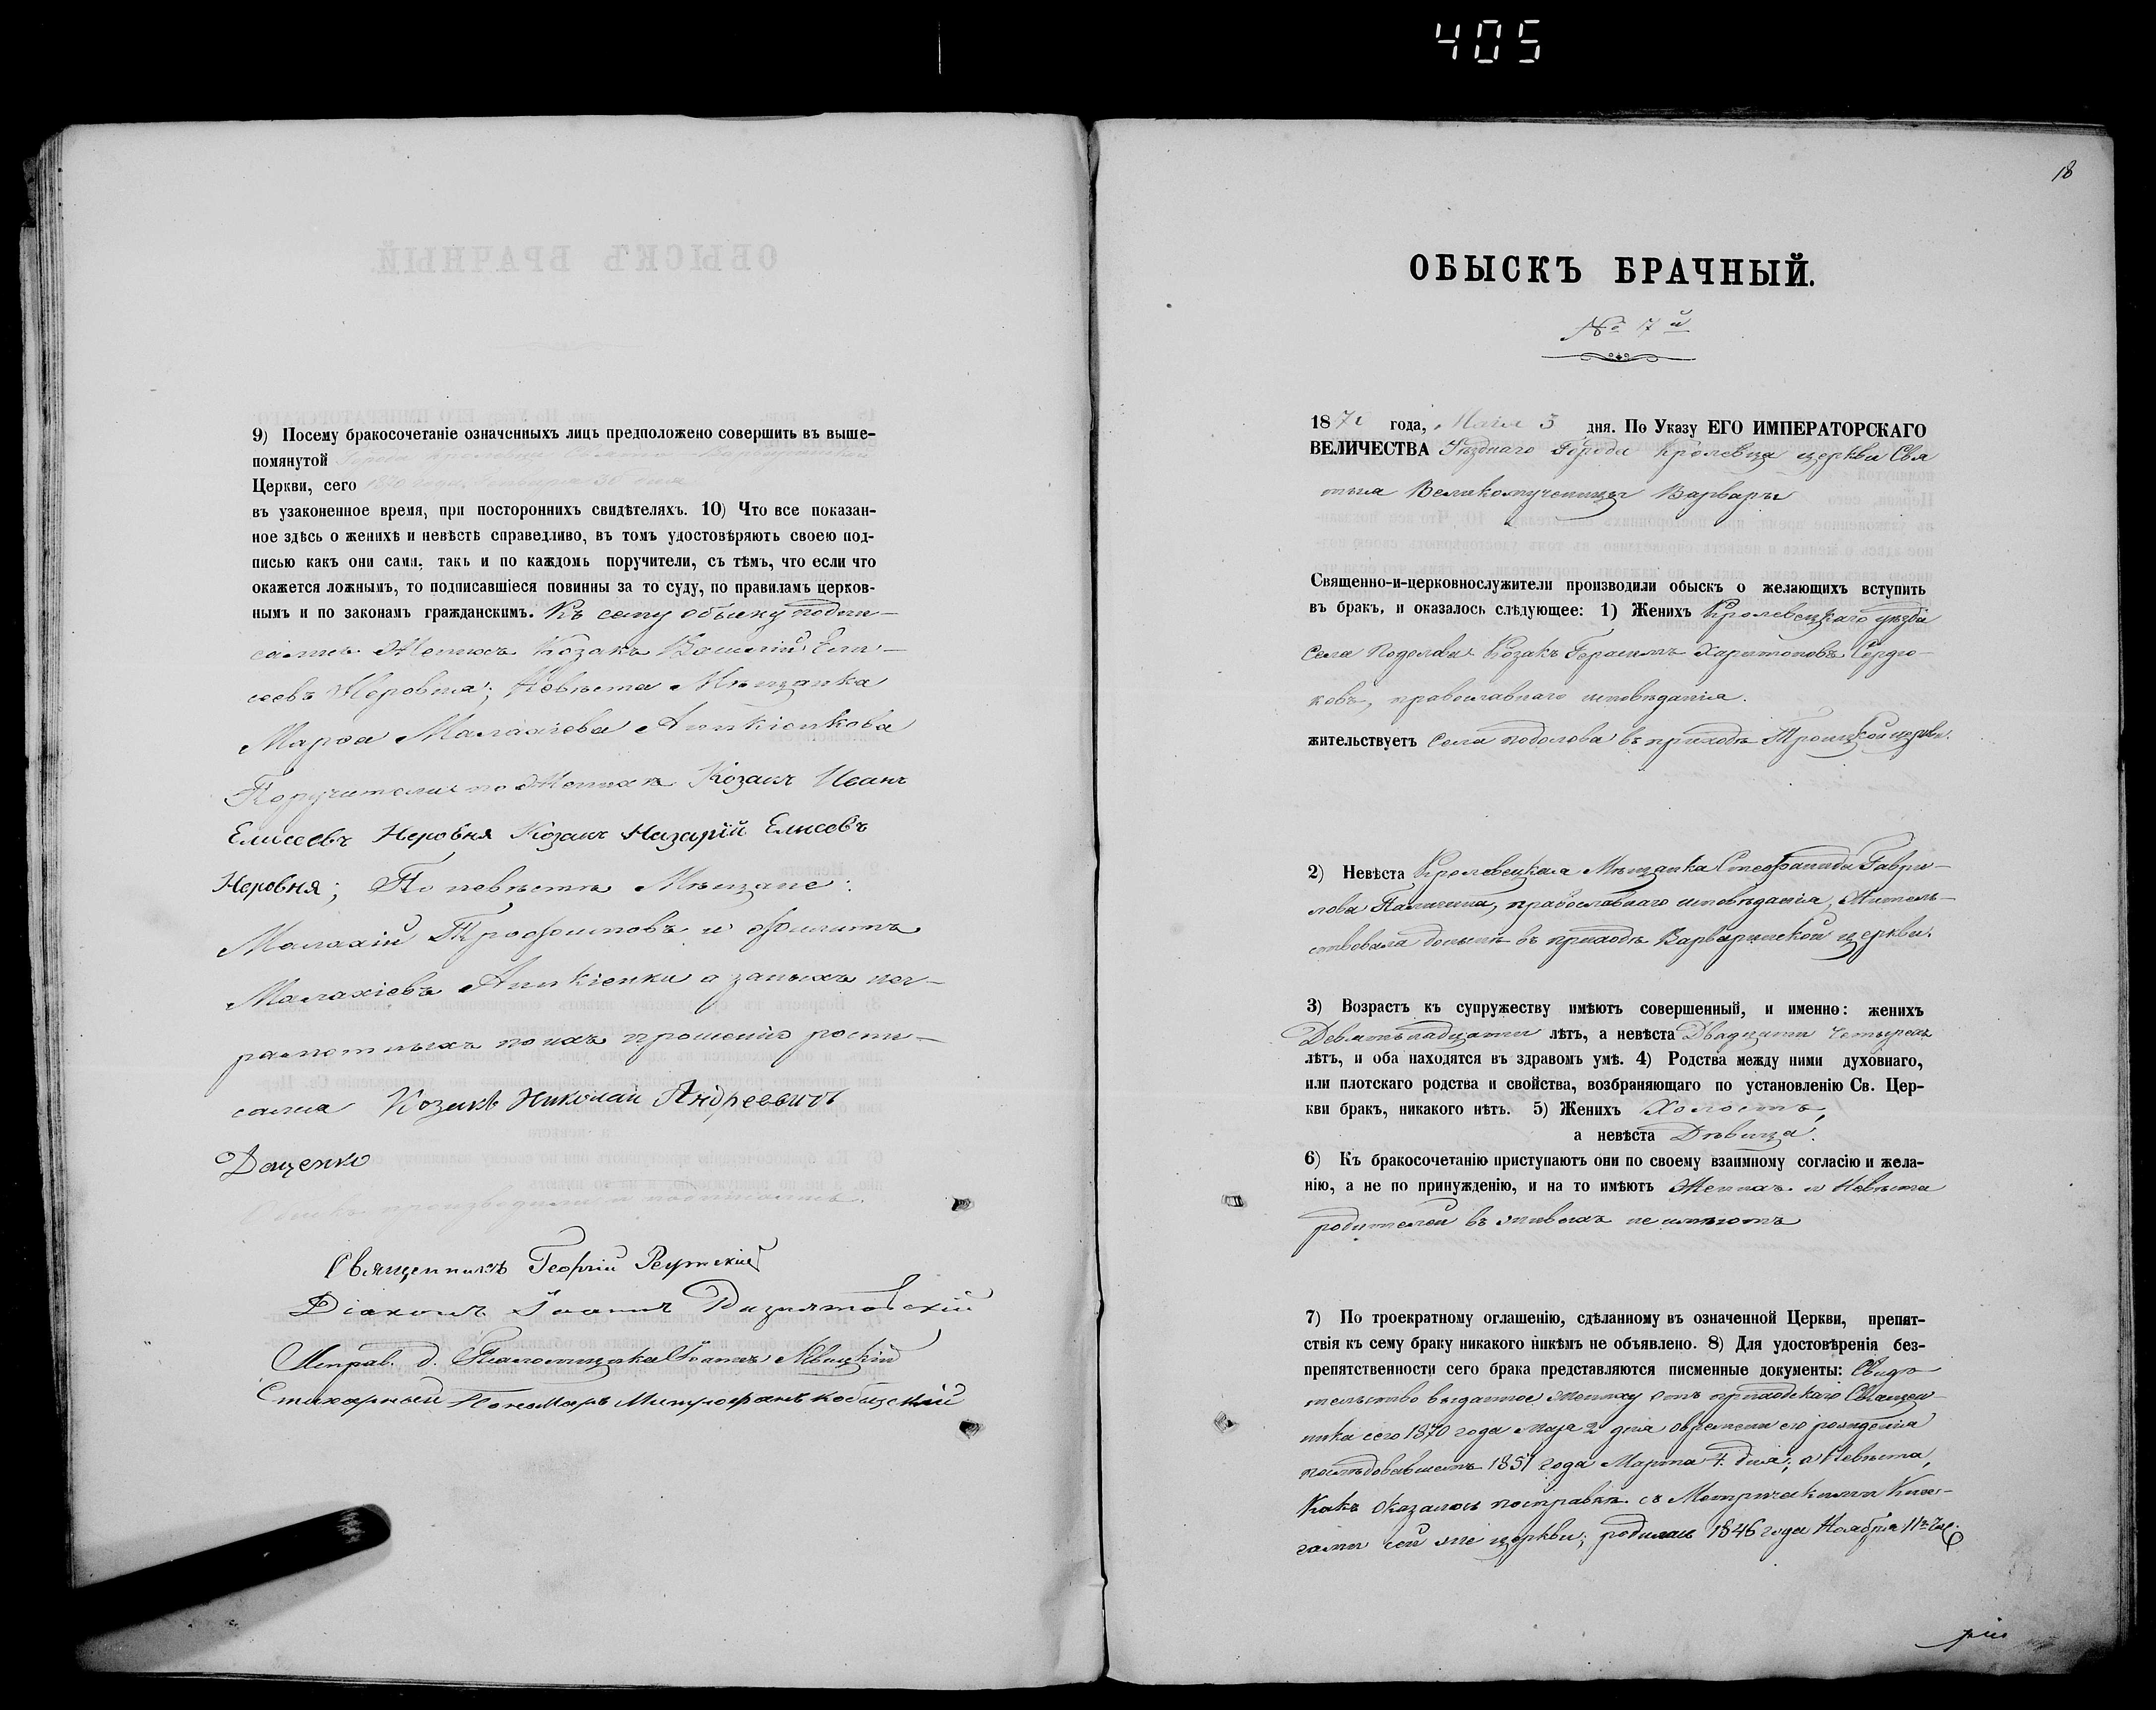 405
9) Посему бракосочетаніе означенныхъ лицъ предположено совершить въ выше-
помянутой Города Кролевца Свято-Варваринской
Церкви, сего 1870 года, Января 30 дня
въ узаконенное время, при постороннихъ свидѣтеляхъ. 10) Что все показан-
ное здѣсь о женихѣ и невѣстѣ справедливо, въ томъ удостовѣряютъ своею под-
писью какъ они сами, такъ и по каждомъ поручители, съ тѣмъ, что если что
окажется ложнымъ, то подписавшіеся повинны за то суду, по правиламъ церков-
нымъ и по законамъ гражданскимъ. Къ сему обыску подпи-
сались Женихъ Козакъ Василій Ели-
сеевъ Неровня; Невѣста Мѣщанка
Марѳа Малахіева
Поручители по Женихѣ Козакъ Иванъ
Елисеевъ Неровня Козакъ Назарій Елисевъ
Неровня; По невѣстѣ Мѣщане:
Малахій Трофимовъ и Филипъ
Малахіевъ а за ныхъ нег-
рамотныхъ по ихъ прошенію роспи-
сался Козакъ Николай Андреевичъ
Даценко
Обыскъ производили и подписались.
Священникъ Георгій Реутскій
Діаконъ Іоаннъ
Исправ. д. Псаломщика Іоаннъ Левицкій
Стихарный Пономарь Митрофанъ Кобицскій
18
ОБЫСКЪ БРАЧНЫЙ.
№ 17й
1870 года, Маія 3 дня. По Указу ЕГО ИМПЕРАТОРСКАГО
ВЕЛИЧЕСТВА Уѣзднаго Города Кролевца церкви Свя
тыя Великомученицы Варвары
Священно-и-церковнослужители производили обыскъ о желающихъ вступить
въ бракъ, и оказалось слѣдующее: 1) Женихъ Кролевецкаго уѣзда
Села Подолова Козакъ Герасимъ Харитоновъ Сердю-
ковъ, православнаго исповѣданія.
жительствуетъ Села Подолова въ приходѣ Троицкой церкви.
2) Невѣста Кролевецкая Мѣщанка Стефанида Гаври-
лова православнаго исповѣданія, Житель-
ствовала донынѣ въ приходѣ Варваринской церкви.
3) Возрастъ къ супружеству имѣютъ совершенный, и именно: женихъ
Девятьнадцати лѣтъ, а невѣста Двадцати Четырехъ
лѣтъ, и оба находятся въ здравомъ умѣ. 4) Родства между ними духовнаго,
или плотскаго родства и свойства, возбраняющаго по установленію Св. Цер-
кви бракъ, никакого нѣтъ. 5) Женихъ Холостъ,
а невѣста Дѣвица.
6) Къ бракосочетанію приступаютъ они по своему взаимному согласію и жела-
нію, а не по принужденію, и на то имѣютъ Женихъ и Невѣста
родителей въ живыхъ не имѣютъ
7) По троекратному оглашенію, сдѣланному въ означенной Церкви, препят-
ствія къ сему браку никакого никѣмъ не объявлено. 8) Для удостовѣренія без-
препятственности сего брака представляются писменные документы: Свидѣ
тельство выданное жениху отъ приходскаго Священ-
ника сего 1870 года Мая 2 дня о времени его рожденія
послѣдовавшемъ 1851 года Марта 4. дня; а Невѣста,
Какъ оказалось по справкѣ съ Метрическими Книг-
гами сей же церкви; родилась 1846 года Ноября 11го